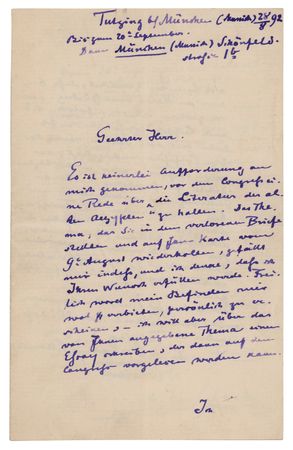 Tutzing b/ München (Museich) 28/8 92
Bis zum 20ten September.
Dann München Schönfeld-
straße 1 b/I
Geehrter Herr.
Es ist keinerlei Aufforderung an
mich gekommen, vor dem Congresse ei
ne Rede über „die Literatur der al
ten Aegypter" zu halten. Das The,
ma, das Sie in dem verlorenen Briefe
stellten und auf Ihrer Karte vom
9t August wiederholen, gefällt
mir indeß, und ich denke, daß ich
Ihren Wunsch erfüllen werde. Frei,
lich word mein Befinden mir
wol verbieten, persönlich zu er
scheinen; – ich will aber über das
von Ihnen angegebene Thema einen
Essay schreiben, der dann auf dem
Congreß vorgelesen werden kann.
Ich